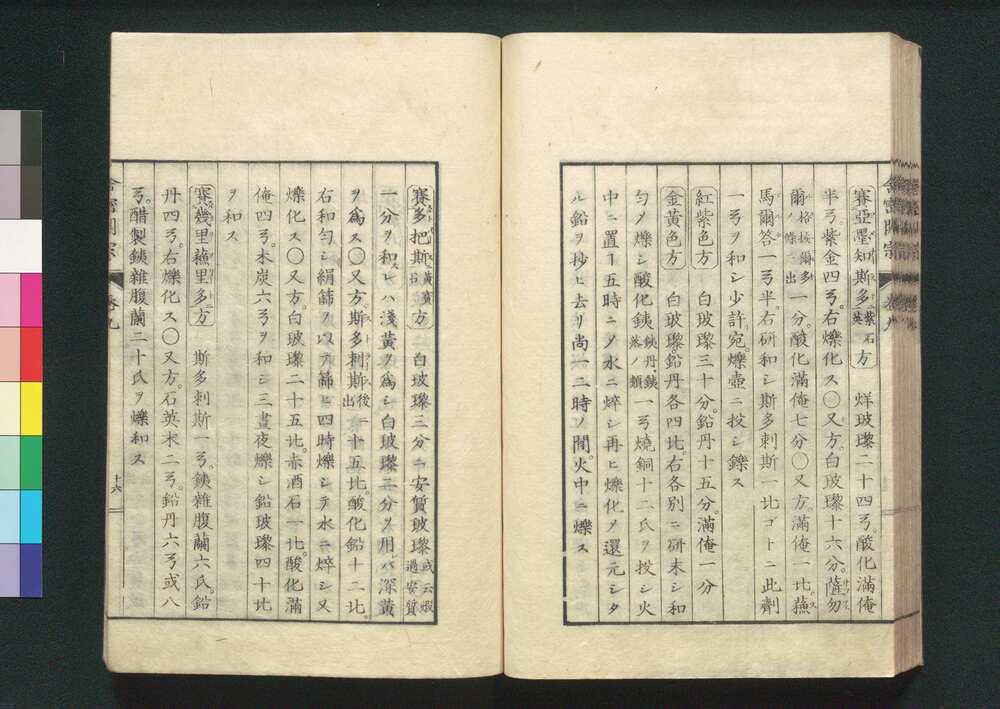 賽亞墨知斯多紫石英方 烊玻瓈二十四弓酸化滿俺
半弓紫金四弓右爍化ス〇又方白玻瓈十六分薩勿
爾格抜爾多ノ條ニ出一分酸化滿俺七分〇又方滿俺一比蘓
馬爾答一弓半右研和シ斯多刺斯一比ゴトニ此劑
一弓ヲ和シ少許宛爍壺ニ投シ鑠ス
紅紫色方 白玻瓈三十分鉛丹十五分滿俺一分
金黃色方 白玻瓈鉛丹各四比右各別ニ研末シ和
匀ノ爍シ酸化銕銕丹銕落ノ類一弓燒銅十二氏ヲ投シ火
中ニ置ヿ五時ニノ水ニ焠シ再ヒ爍化ノ還元シタ
ル鉛ヲ抄ヒ去リ尚一二時ノ間火中ニ爍ス
舎密開宗 卷九
賽多把斯黃寳石方 白玻瓈三分ニ安質玻瓈或云煆過安質
一分ヲ和スレハ淺黃ヲ爲シ白玻瓈二分ヲ用レバ深黃
ヲ爲ス〇又方斯多刺斯後出二十五比酸化鉛十二比
右和匀シ絹篩ヲ以テ篩ヒ四時爍シテ水ニ焠シ又
爍化ス〇又方白玻瓈二十五比赤酒石一比酸化滿
俺四弓木炭六弓ヲ和シ三晝夜爍シ鉛玻瓈四十比
ヲ和ス
賽幾里蘓里多方 斯多刺斯一弓銕雜腹蘭六氏鉛
丹四弓右爍化ス〇又方石英末二弓鉛丹六弓或八
弓醋製銕雜腹蘭二十氏ヲ爍和ス
十六